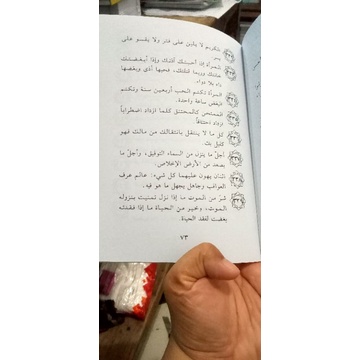 الكريم لا يلين على قسر ولا يقسو على
يسر.
المرأة إذا أحبتك آذتك، وإذا أبغضتك
خانتك وربما قتلتك، فحبها أذى وبغضها
داء بلا دواء.
المرأة تكتم الحب أربعين سنة ولا تكتم
البغض ساعة واحدة.
كلما ازداد اضطراباً
ازداد اختناقاً.
كل ما لا ينتقل بانتقالك من مالك فهو
كفيل بك.
أجلّ ما ينزل من السماء التوفيق، وأجلّ ما
يصعد من الأرض الإخلاص.
اثنان يهون عليهما كل شيء: عالم عرف
العواقب وجاهل يجهل ما هو فيه.
شر من الموت ما إذا نزل تمنيت بنزوله
الموت، وخير من الحياة ما إذا فقدته
بغضت لفقد الحياة.
٧٣